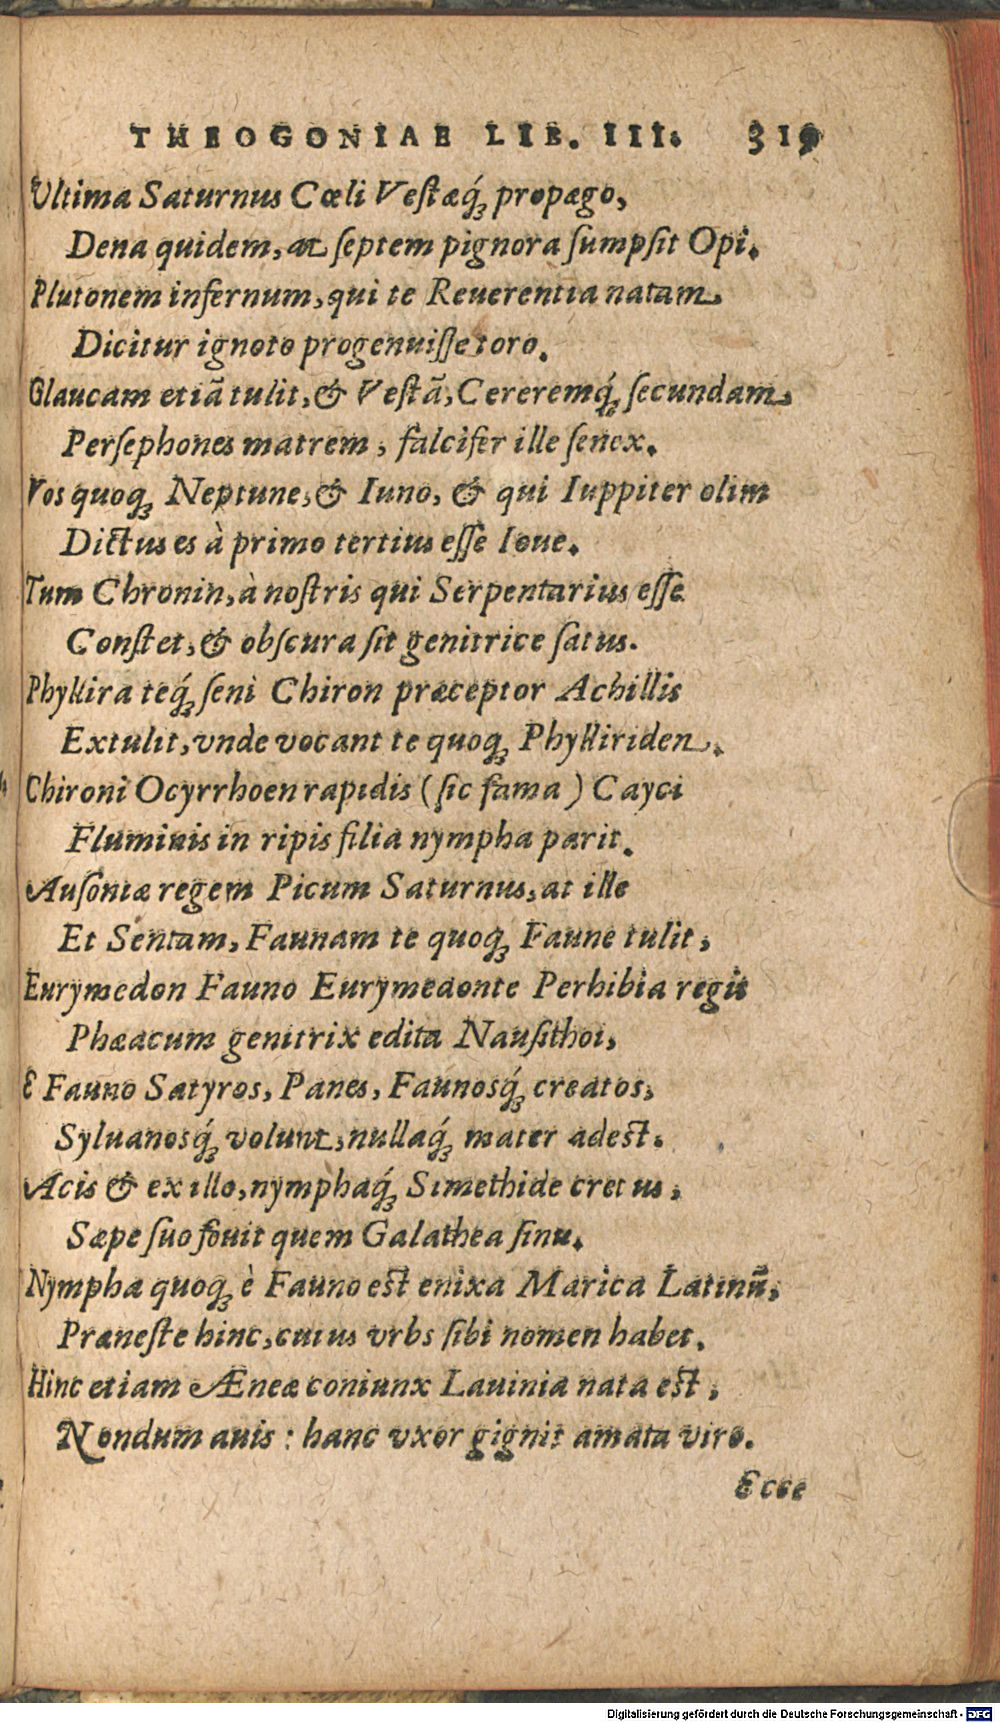 THEOGONIAE LIB. III. 319
Ultima Saturnus Cœli Veſtæq́ꝫ propago,
Dena quidem, at ſeptem pignora ſumpſit Opi.
Plutonem infernum, qui te Reuerentia natam,
Dicitur ignoto progenuiſſe toro.
Glaucam etiã tulit, & Veſtã, Cereremq́ꝫ ſecundam,
Perſephones matrem, falcifer ille ſenex.
Vos quoqꝫ Neptune, & Iuno, & qui Iuppiter olim
Dictus es à primo tertius eſſe Ioue.
Tum Chronin, à noſtris qui Serpentarius eſſe
Conſtet, & obſcura ſit genitrice ſatus.
Phyllira teq́ꝫ ſeni Chiron præceptor Achillis
Extulit, vnde vocant te quoqꝫ Phylliriden.
Chironi Ocyrrhoen rapidis (ſic fama) Cayci
Fluminis in ripis filia nympha parit.
Auſoniæ regem Picum Saturnus, at ille
Et Sentam, Faunam te quoqꝫ Faune tulit,
Eurymedon Fauno Eurymedonte Perhibia regis
Phæacum genitrix edita Nauſithoi,
E Fauno Satyros, Panes, Faunosq́ꝫ creatos,
Syluanosq́ꝫ volunt, nullaq́ꝫ mater adeſt.
Acis & ex illo, nymphaq́ꝫ Simethide cretus,
Sæpe ſuo fouit quem Galathea ſinu.
Nympha quoqꝫ è Fauno eſt enixa Marica Latinũ,
Præneſte hinc, cuius vrbs ſibi nomen habet.
Hinc etiam Æneæ coniunx Lauinia nata eſt,
Nondum auis: hanc vxor gignit amata viro.
Ecce
Digitalisierung gefördert durch die Deutsche Forschungsgemeinschaft - DFG